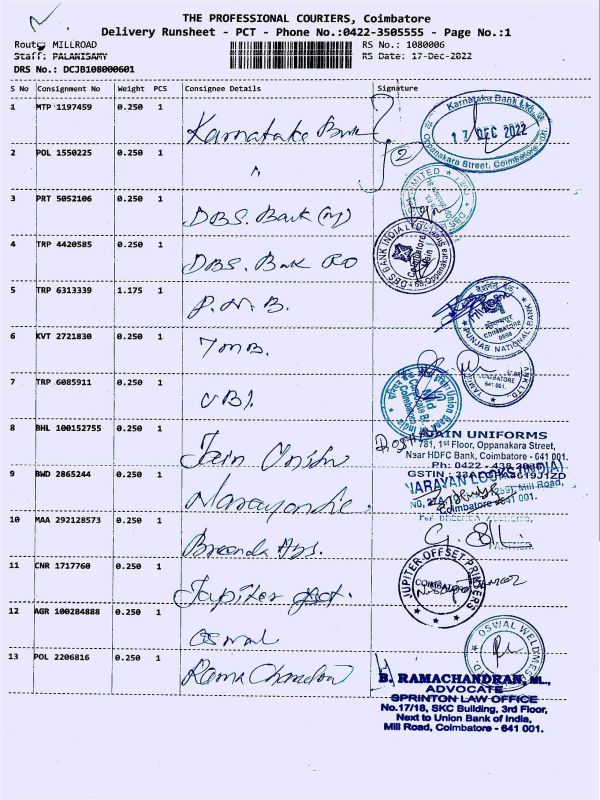 THE PROFESSIONAL COURIERS, Coimbatore
Delivery Runsheet - PCT - Phone No.:0422-3505555 - Page No.:1
Route: MILLROAD RS No.: 1080006
Staff: PALANISAMY RS Date: 17-Dec-2022
DRS No.: DCJB108000601
S No Consignment No Weight PCS Consignee Details Signature
1 MTP 1197459 0.250 1 Karnataka Bank
Karnataka Bank Ltd.
17 DEC 2022
Oppanakara Street, Coimbatore
2 POL 1550225 0.250 1 "
3 PRT 5052106 0.250 1 DBS. Bank (M)
4 TRP 4420585 0.250 1 DBS. Bank RO
DBS BANK INDIA LTD
5 TRP 6313339 1.175 1 P.N.B.
PUNJAB NATIONAL BANK
COIMBATORE
6 KVT 2721830 0.250 1 TMB.
COIMBATORE
641 001.
7 TRP 6085911 0.250 1 UBI
Union Bank
8 BHL 100152755 0.250 1 Jain Uniform
JAIN UNIFORMS
781, 1st Floor, Oppanakara Street,
Near HDFC Bank, Coimbatore - 641 001.
Ph: 0422 - 438
GSTIN : 33A 8619J1ZD
9 BWD 2865244 0.250 1
NARAYAN LOOKS (INDIA)
Mill Road,
Coimbatore 641 001.
10 MAA 292128573 0.250 1
11 CNR 1717760 0.250 1 Jupiter
JUPITER OFFSET PRINTERS
COIMBATORE
12 AGR 100284888 0.250 1 Oswal
OSWAL
13 POL 2206816 0.250 1 Rama Chandran
B. RAMACHANDRAN, ML.,
ADVOCATE
SPRINTON LAW OFFICE
No.17/18, SKC Building, 3rd Floor,
Next to Union Bank of India,
Mill Road, Coimbatore - 641 001.